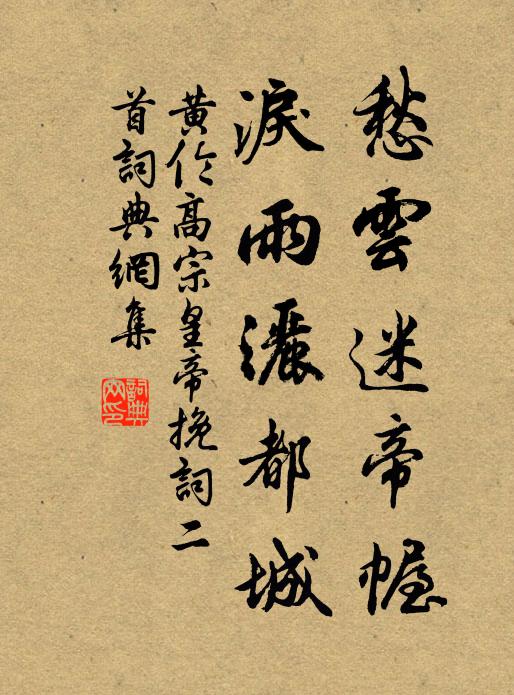 愁雲迷帝幄
淚雨灑都城
黃伦高宗皇帝挽詞二
首詞典網集
詞典網印